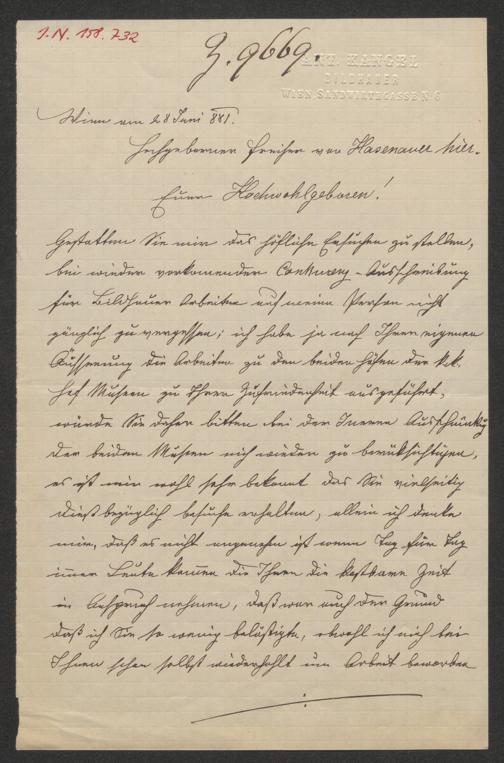 I.N. 158.732
Z. 9669.
ANT. KANGEL
BILDHAUER
WIEN SANDWIRTGASSE No 8
Wien am 28 Juni 881.
Hochgeborner Freiherr von Hasenauer hier.
Euer Hochwohlgeboren!
Gestatten Sie mir das höfliche Ersuchen zu stellen,
bei wieder vorkomender Conkurenz-Ausschreibung
für Bildhauer Arbeiten auf meine Person nicht
gänzlich zu vergessen; ich habe ja nach Ihrer eigenen
Äusserung die Arbeiten zu den beiden Höfen der k.k.
Hof Museen zu Ihrer Zufriedenheit ausgeführt,
würde Sie daher bitten bei der Ineren Ausschmükg
der beiden Museen mich wieder zu berüksichtigen,
es ist mir wohl sehr bekannt das Sie vielseitig
diesbezüglich besuche erhalten, allein ich denke
mir, daß es nicht angenehm ist wenn Tag für Tag
imer Leute kommen die Ihnen die kostbare Zeit
in Anspruch nehmen, daß war auch der Grund
daß ich Sie so wenig belästigte, obwohl ich mich bei
Ihnen schon selbst wiederhohlt um Arbeit beworben